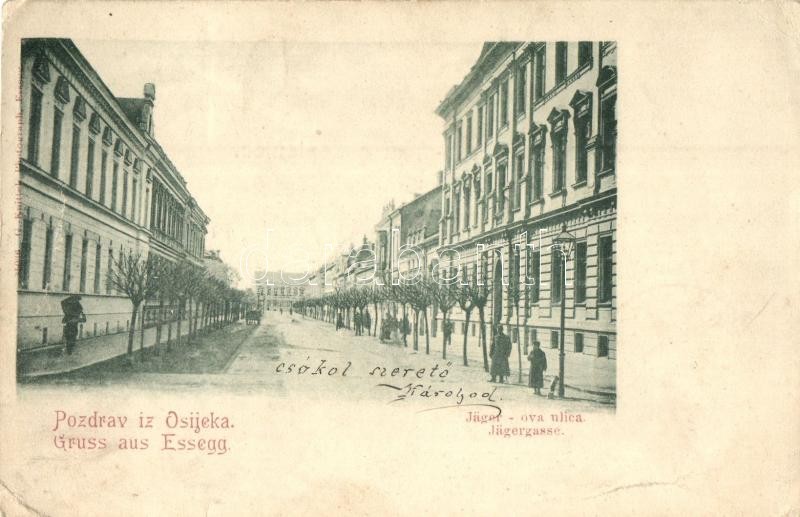 csókol szerető
Károlyod.
Pozdrav iz Osijeka.
Gruss aus Essegg.
Jäger - ova ulica.
Jägergasse.
darabanth